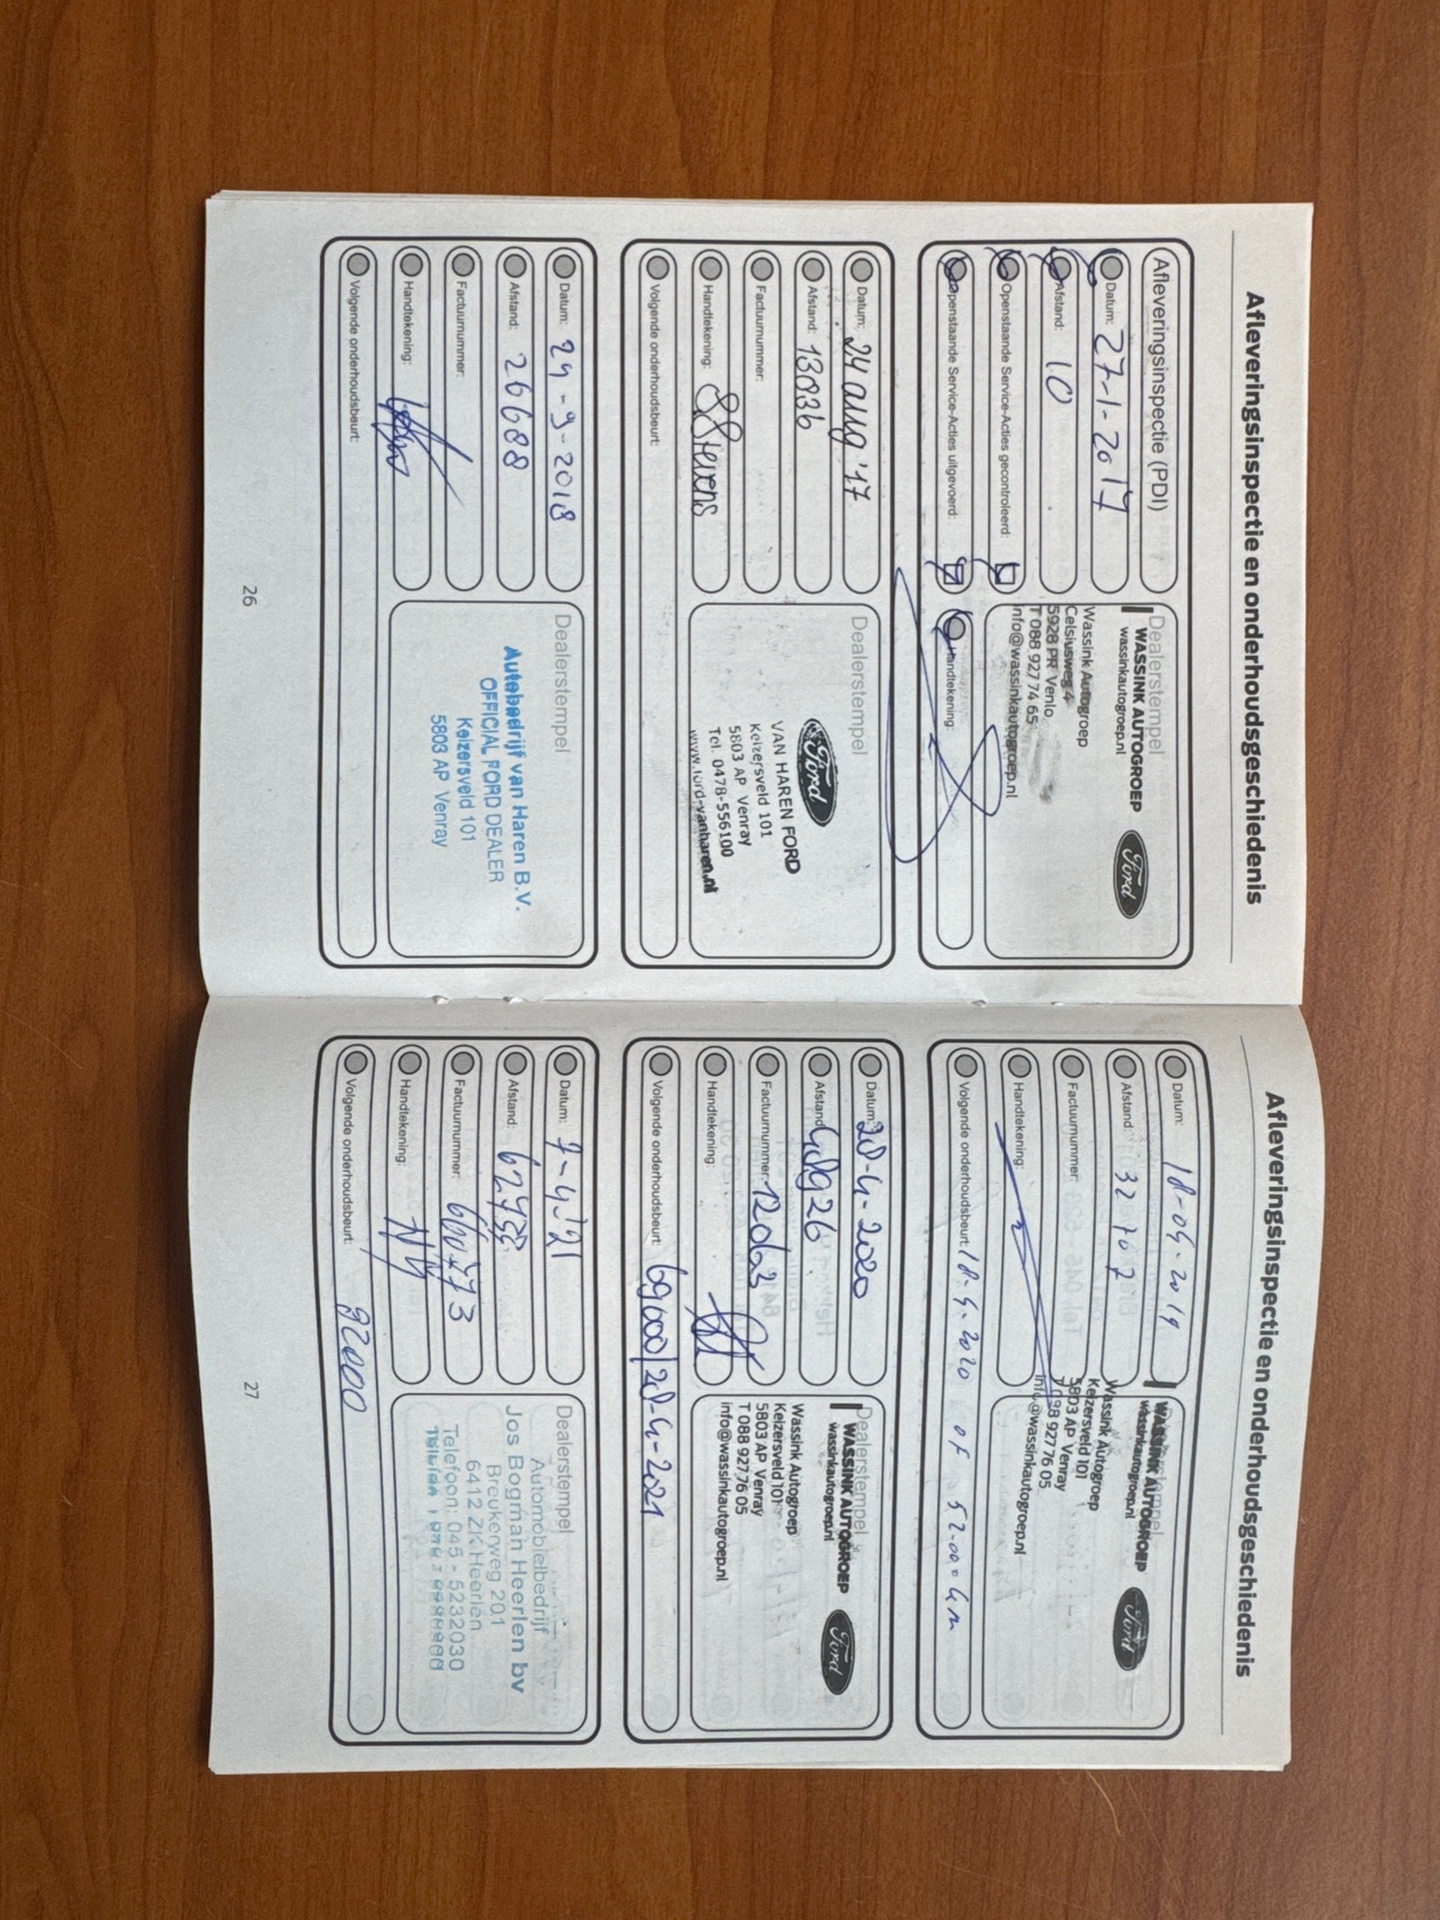 Afleveringsinspectie en onderhoudsgeschiedenis
Afleveringsinspectie (PDI)
Datum: 27-1-2017
Afstand: 10
Openstaande Service-Acties gecontroleerd:
Openstaande Service-Acties uitgevoerd:
Dealerstempel
WASSINK AUTOGROEP
wassinkautogroep.nl
Ford
Wassink Autogroep
Celsiusweg 4
5928 PR Venlo
T 088 927 74 65
info@wassinkautogroep.nl
Handtekening:
Datum: 24 aug '17
Afstand: 13836
Factuurnummer:
Handtekening: SStevens
Volgende onderhoudsbeurt:
Dealerstempel
Ford
VAN HAREN FORD
Keizersveld 101
5803 AP Venray
Tel. 0478-556100
www.ford-vanharen.nl
Datum: 24-9-2018
Afstand: 26688
Factuurnummer:
Handtekening:
Volgende onderhoudsbeurt:
Dealerstempel
Autobedrijf van Haren B.V.
OFFICIAL FORD DEALER
Keizersveld 101
5803 AP Venray
26
Afleveringsinspectie en onderhoudsgeschiedenis
Datum: 18-04-2019
Afstand: 32707
Factuurnummer:
Handtekening:
Volgende onderhoudsbeurt: 18-4-2020 of 52.000 km
Dealerstempel
WASSINK AUTOGROEP
wassinkautogroep.nl
Ford
Wassink Autogroep
Keizersveld 101
5803 AP Venray
T 088 927 76 05
info@wassinkautogroep.nl
Datum: 28-4-2020
Afstand: 48926
Factuurnummer:
Handtekening:
Volgende onderhoudsbeurt: 69000/28-4-2021
Dealerstempel
WASSINK AUTOGROEP
wassinkautogroep.nl
Ford
Wassink Autogroep
Keizersveld 101
5803 AP Venray
T 088 927 76 05
info@wassinkautogroep.nl
Datum: 7-4-'21
Afstand:
Factuurnummer:
Handtekening:
Volgende onderhoudsbeurt: 92000
Dealerstempel
Automobielbedrijf
Jos Bogman Heerlen bv
Breukerweg 201
6412 ZK Heerlen
Telefoon: 045 - 5232030
27